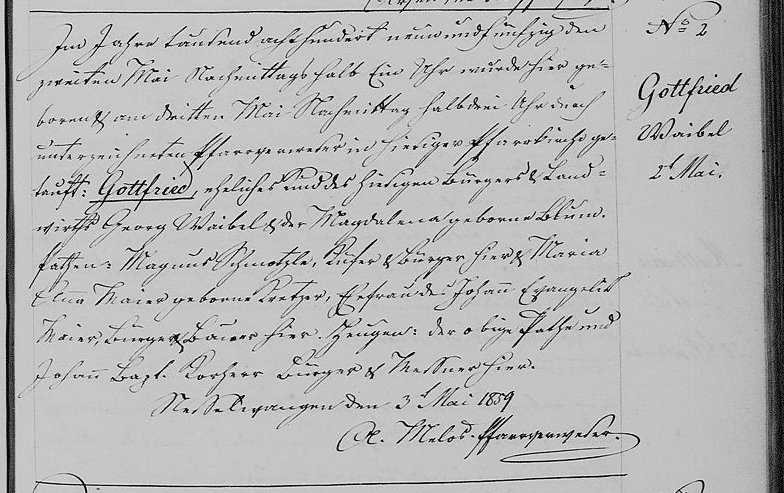 Im Jahre tausend acht hundert neun und fünfzig den
zweiten Mai Nachmittags halb Ein Uhr wurde hier ge-
boren & am dritten Mai Nachmittag halb drei Uhr durch
unterzeichneten Pfarrverweser in hiesiger Pfarrkirche ge-
tauft: Gottfried, eheliches Kind des hiesigen Bürgers & Land-
wirths Georg Waibel & der Magdalena geborne Blum.
Pathen: Magnus Schmotzle, Küfer & Bürger hier & Maria
Anna Maier geborne Kretzer, Ehefrau des Johann Evangelist
Maier, Bürger & Bauer hier. Zeugen: der obige Pathe und
Johann Bapt. Korherr Bürger & Messner hier.
Nesselwangen den 3t Mai 1859
A. Melos Pfarrverweser.
No 2
Gottfried
Waibel
2t Mai.